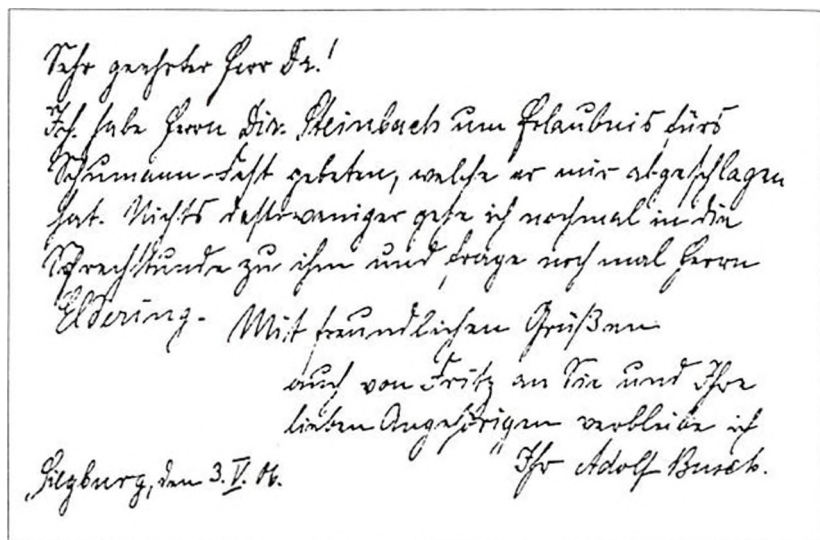 Sehr geehrter Herr Dr.!
Ich habe Herrn Dir. Steinbach um Erlaubnis fürs
Schumann-Fest gebeten, welche er mir abgeschlagen
hat. Nichts desto weniger gehe ich nochmal in die
Sprechstunde zu ihm und frage noch mal Herrn
Eldering. Mit freundlichen Grüßen
auch von Fritz an Sie und Ihre
lieben Angehörigen verbleibe ich
Ihr Adolf Busch.
Siegburg, den 3. V. 06.